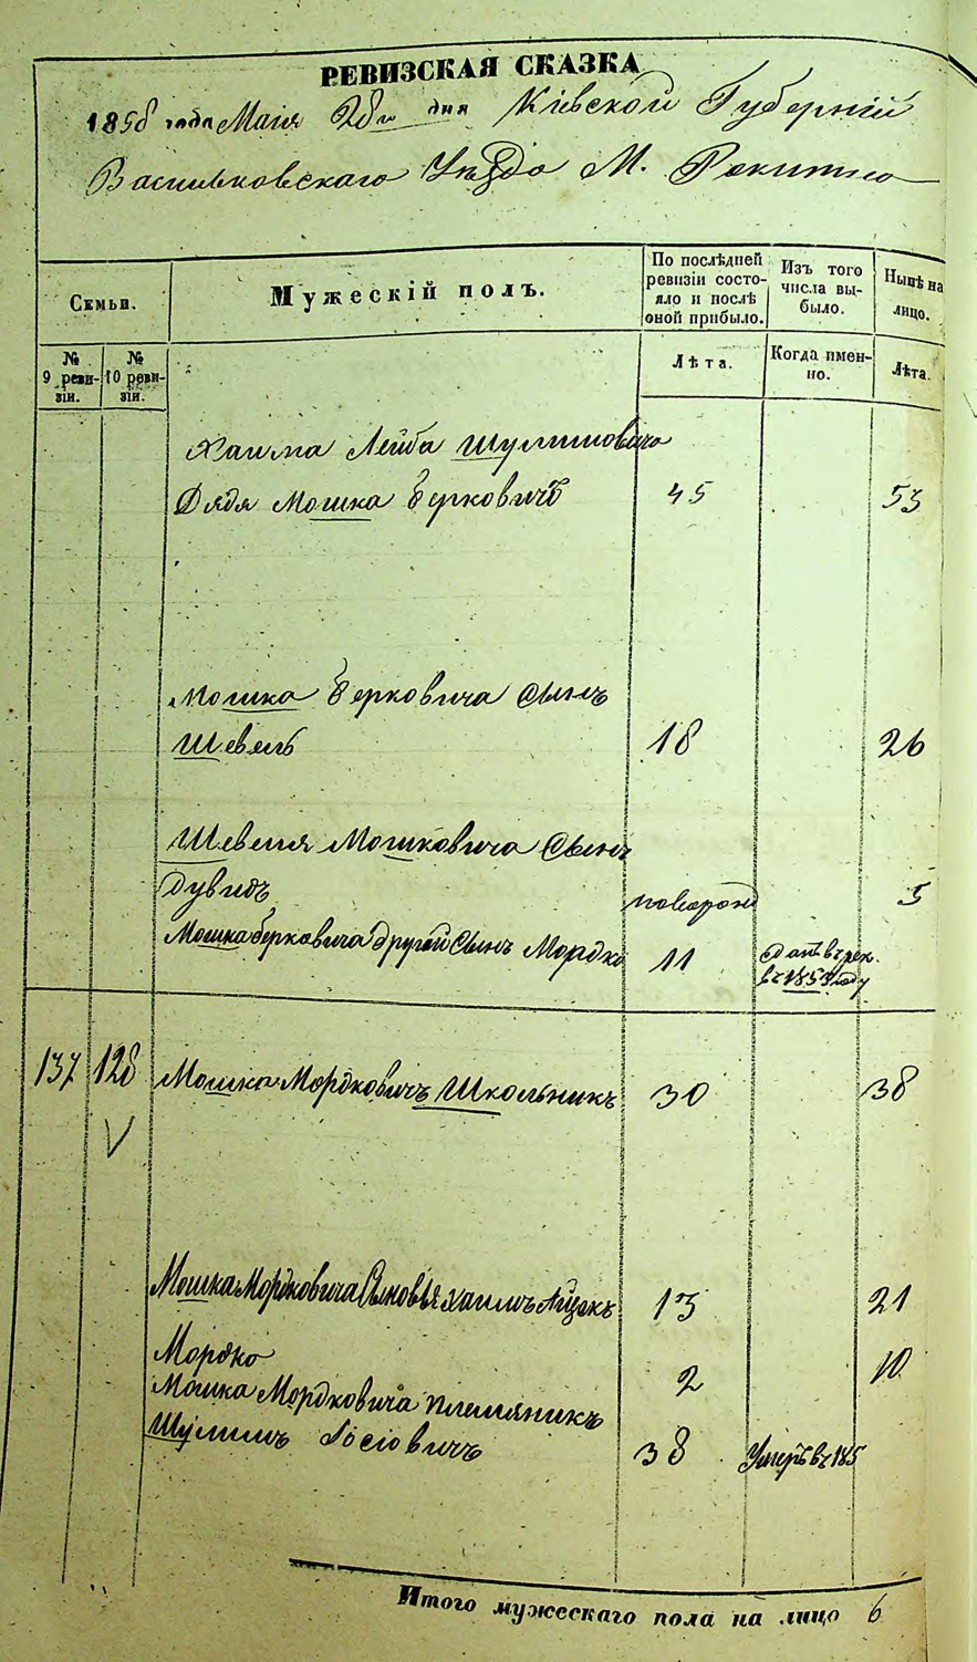 РЕВИЗСКАЯ СКАЗКА
1858 года Маія 28го дня Кіевской Губерніи
Васильковскаго Уѣзда М. Рокитно
Семьи.
Мужескій полъ.
По послѣдней ревизіи состояло и послѣ оной прибыло.
Изъ того числа выбыло.
Нынѣ на лицо.
№ 9 ревизіи.
№ 10 ревизіи.
Лѣта.
Когда именно.
Лѣта.
Хаима Лейба Шулимовича
Дядя Мошка Берковичъ 45 53
Мошка Берковича Сынъ
Шевель 18 26
Шевеля Мошковича Сынъ
Дувидъ новорожд 5
Мошка Берковича другой Сынъ Мордко 11 Сданъ въ рек.
въ 1853 году
137 128 Мошка Мордковичъ Школьникъ 30 38
Мошка Мордковича Сыновья Хаимъ Айзекъ 13 21
Мордко 2 10
Мошка Мордковича племяникъ
Шулимъ Іосіовичъ 38 Умеръ въ 185
Итого мужескаго пола на лицо 6